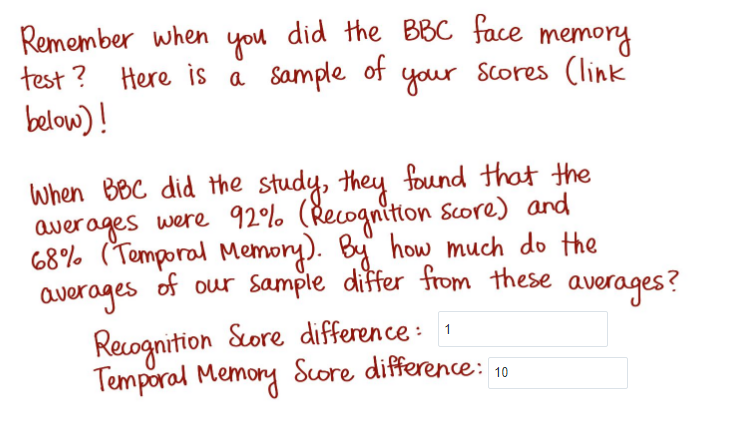 Remember when you did the BBC face memory
test? Here is a sample of your scores (link
below)!
When BBC did the study, they found that the
averages were 92% (Recognition Score) and
68% (Temporal Memory). By how much do the
averages of our sample differ from these averages?
Recognition Score difference: 1
Temporal Memory Score difference: 10